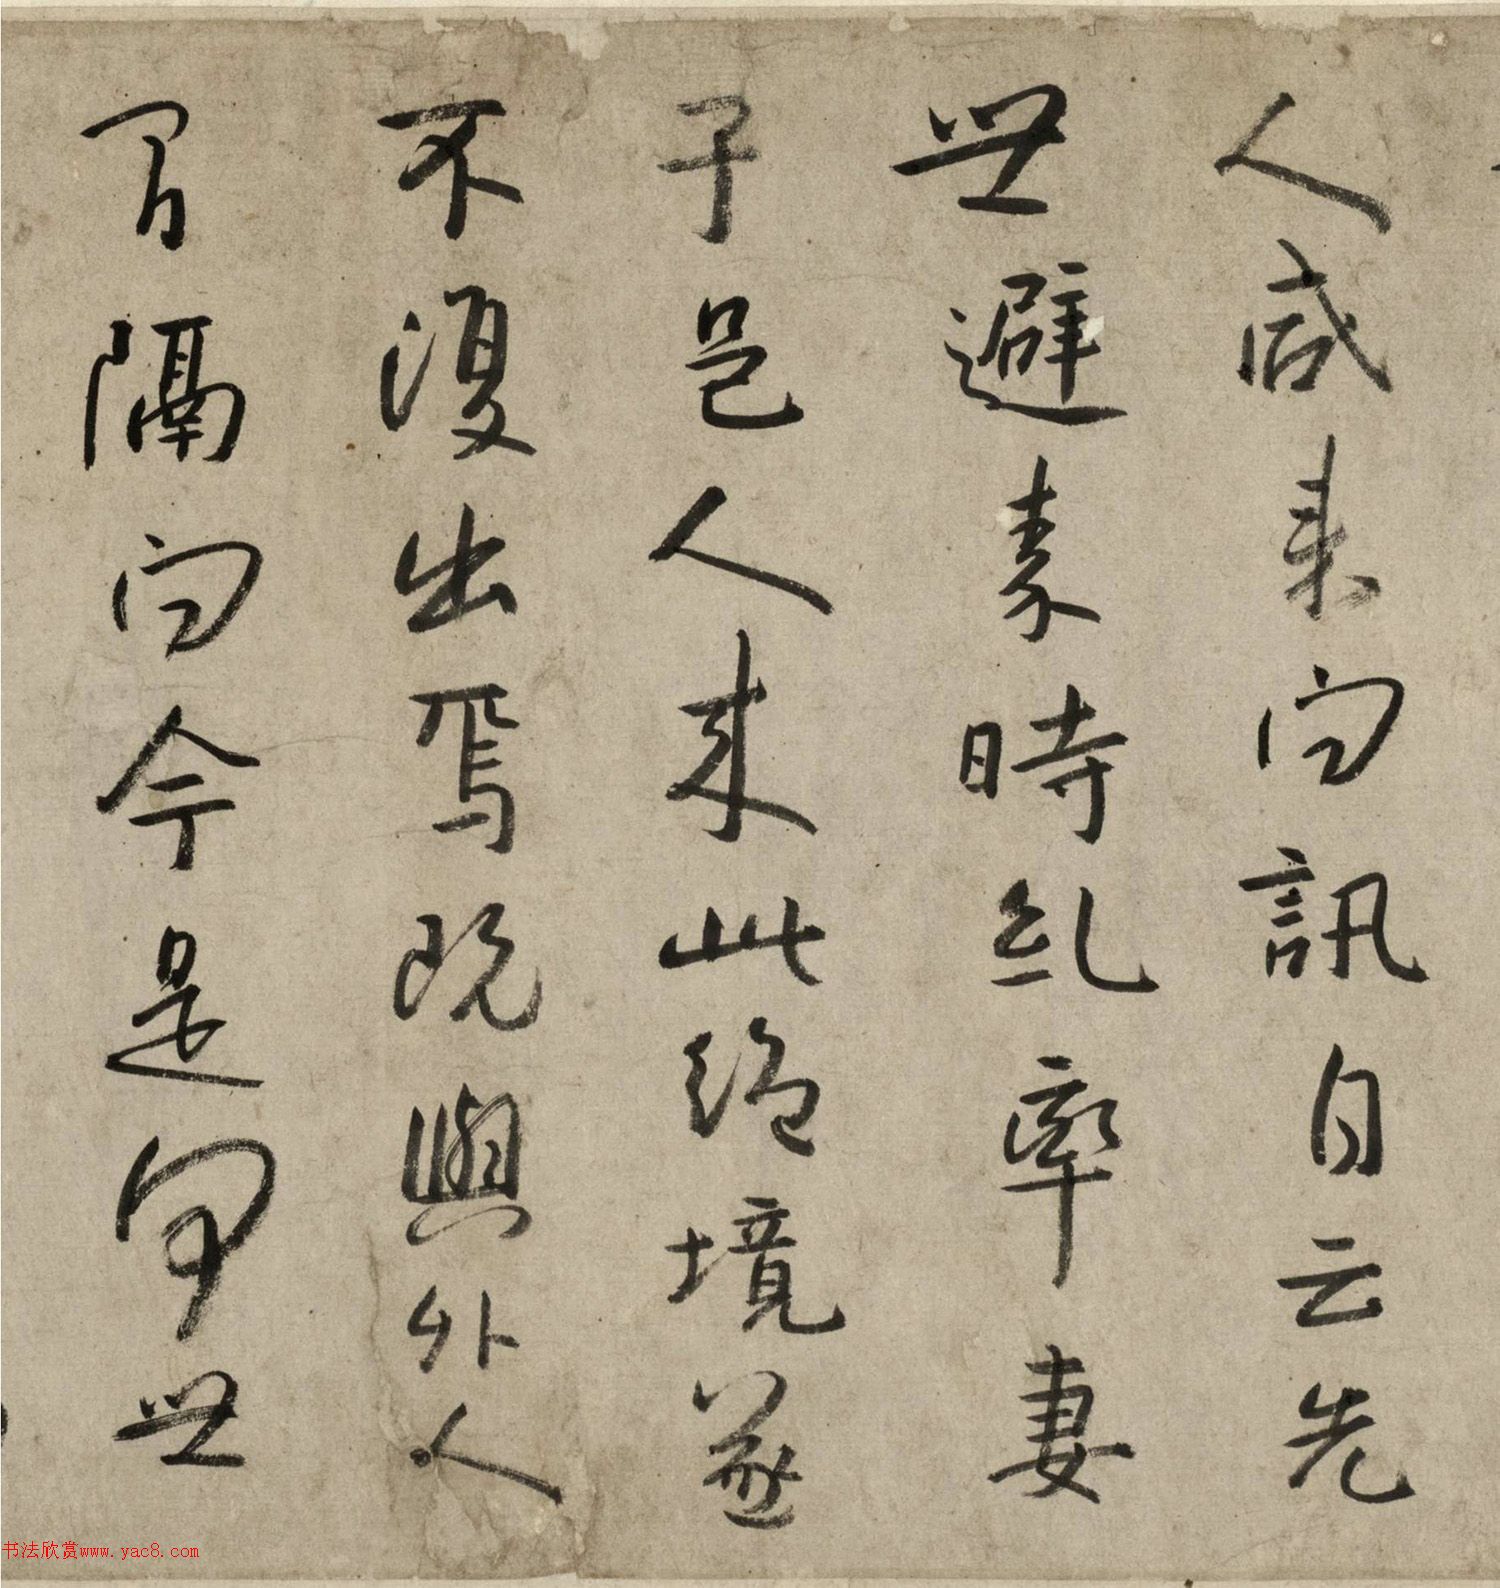 人咸来問訊自云先
世避秦時乱率妻
子邑人来此絶境遂
不復出焉既與外人
間隔問今是何世
书法欣赏www.yac8.com